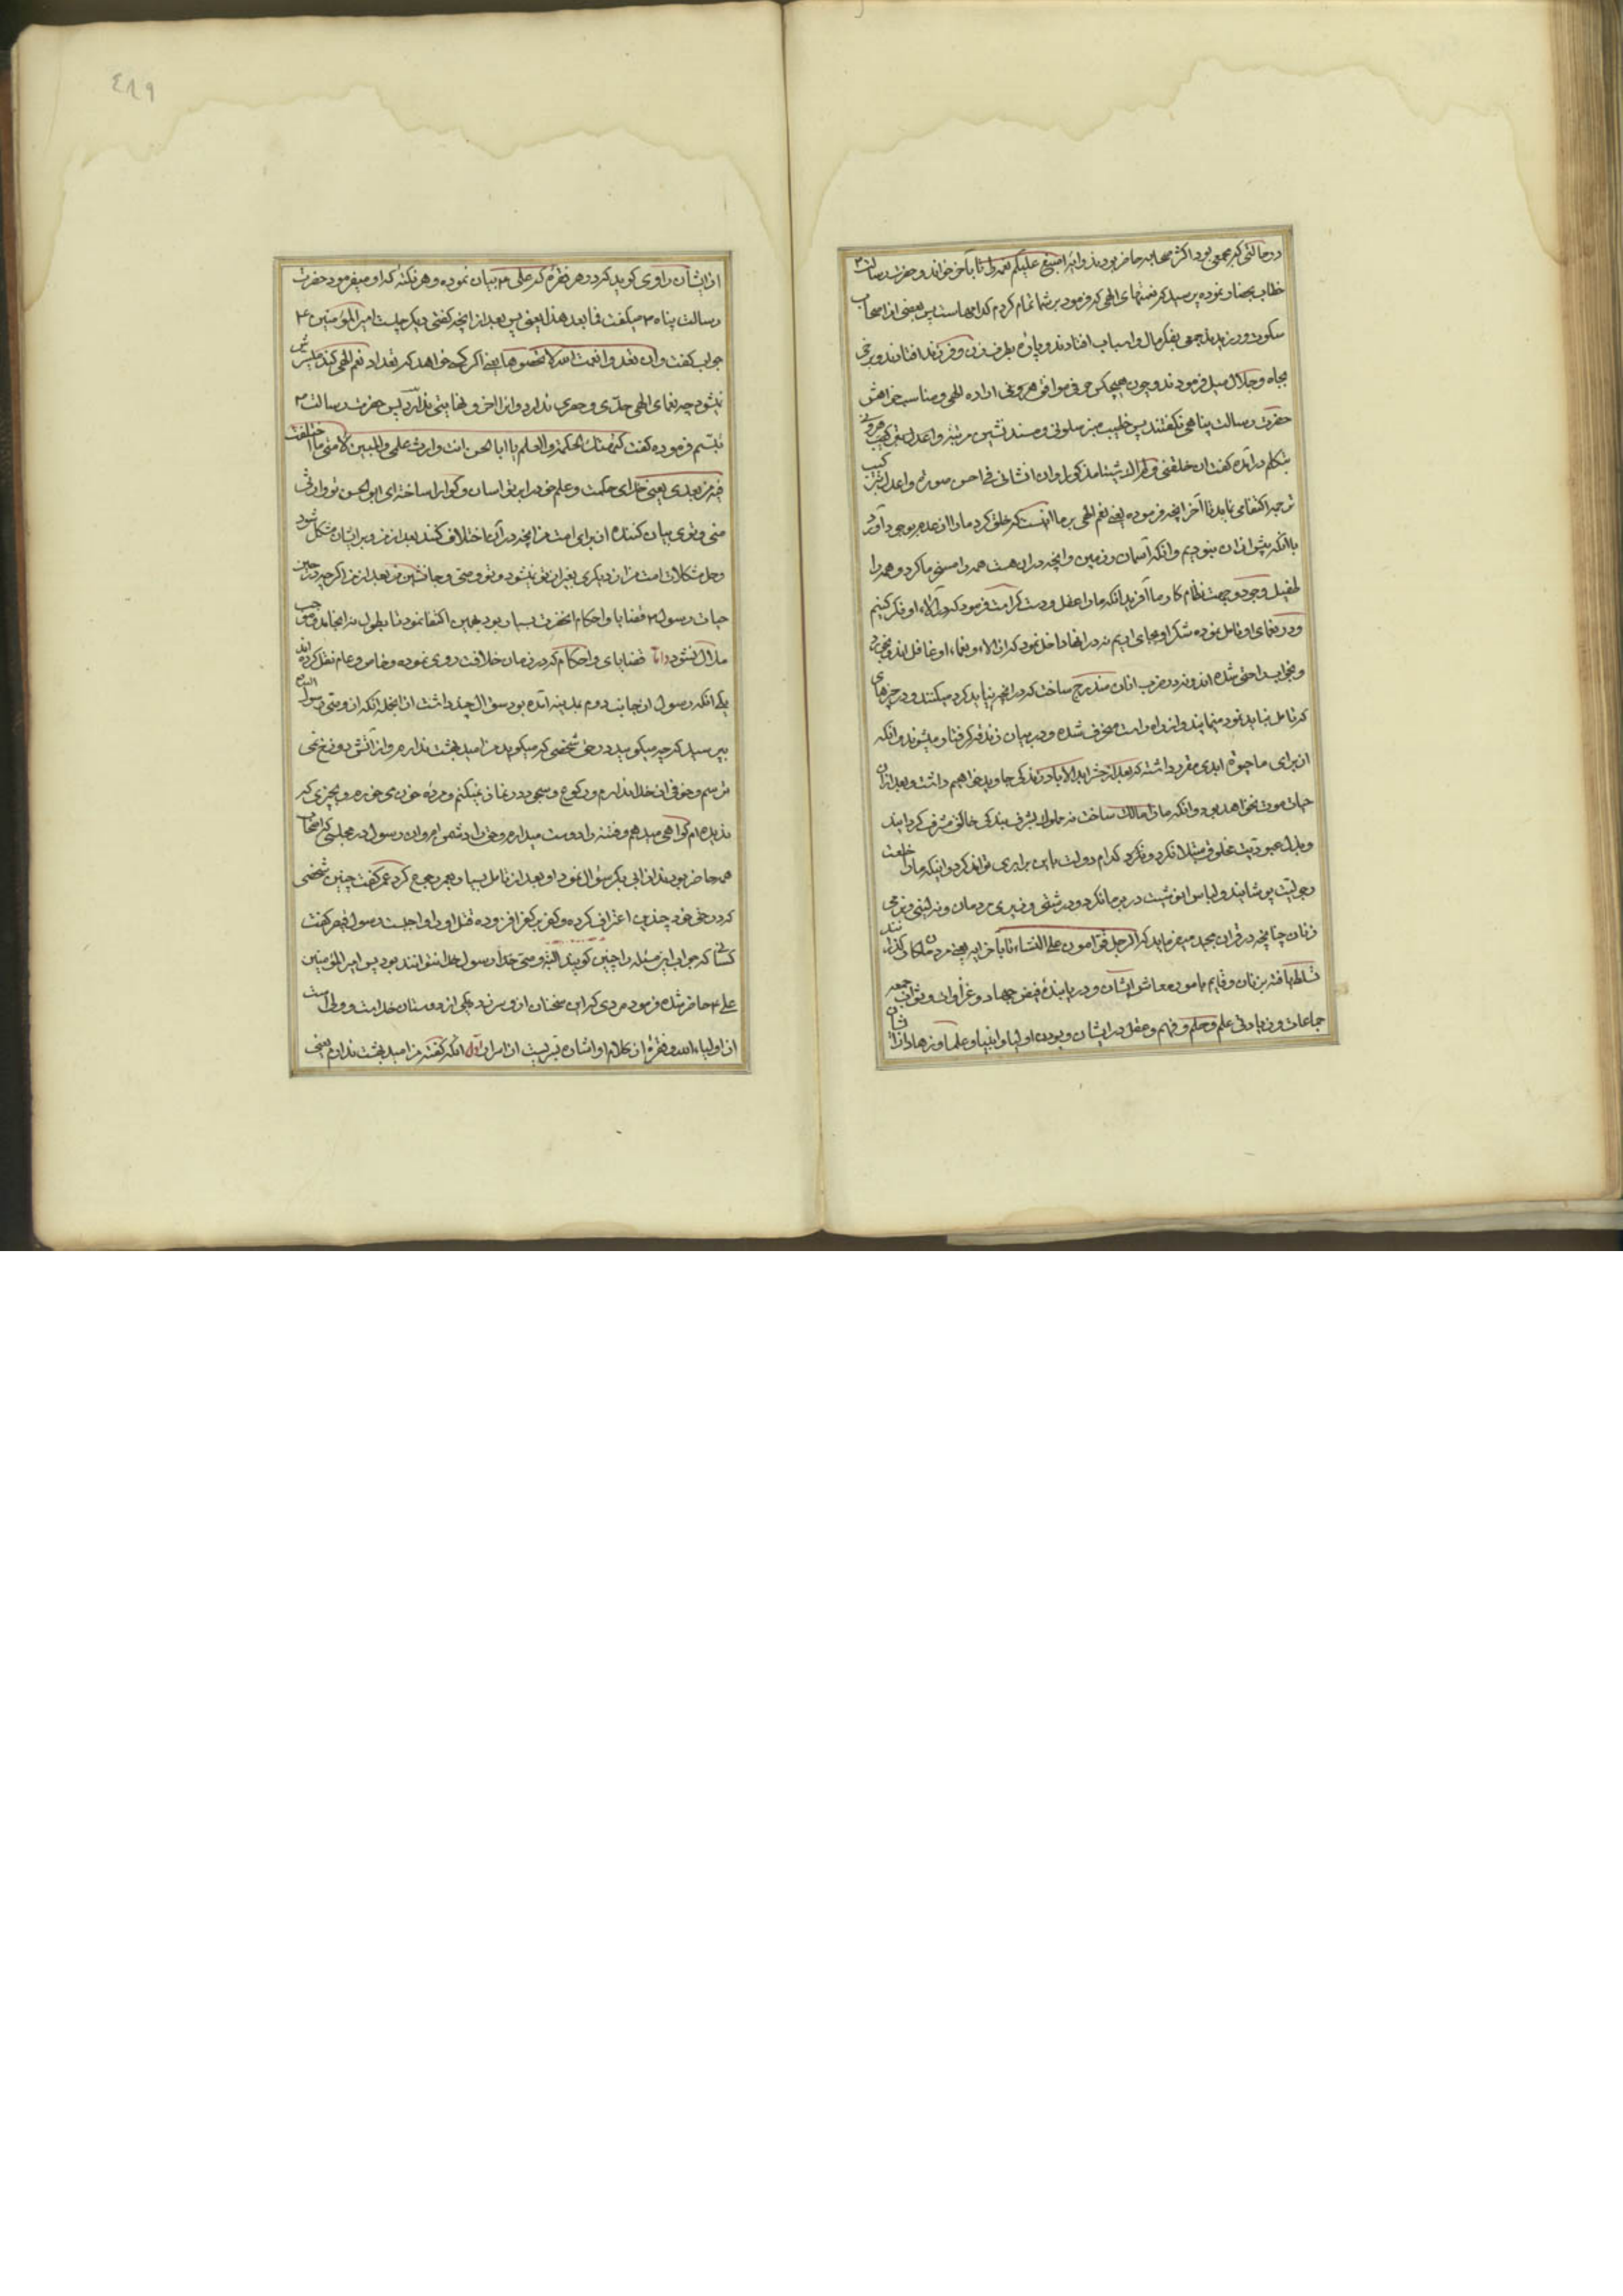 در حالتی که مجمعی بود اکثر صحابه حاضر بودند و آیه اسبغ علیکم نعمه را تا بآخر خواند و حضرت رسالت ۳
خطاب بحضار نموده پرسید که نعمتهای الهی که فرمود بر شما تمام کردم کدامهاست پس بعضی از اصحاب
سکوت ورزیدند جمعی بفکر مال و اسباب افتادند و پاره بطرف زن و فرزند افتادند و برخی
بجاه و جلال میل فرمودند و چون هیچکس حرفی موافق اراده الهی و مناسب خواهش
حضرت رسالت پناهی نگفتند پس خطیب منبر سلونی و مسندنشین
بتکلم درآمده گفت ان خلقنی و لم اک شیئا مذکورا و ان انشأنی فی احسن صورة و اعدل ترکیب
ترجمه اکتفا می نماید تا آخر آنچه فرموده یعنی نعم الهی بر ما آنست که خلق کرد ما را از عدم بوجود آورد
با آنکه پیش از آن نبودیم و آنکه آسمان و زمین و آنچه در آن هست همه را مسخر ما کرد و همه را
طفیل وجود و جهت نظام کار ما آفرید آنکه ما را عقل و دست کرامت فرمود که در آلاء او فکر کنیم
و در نعمای او تامل نموده شکر او بجای آریم نه در آنها داخل نمود که از آلاء و نعماء او غافل اند و بیخبر
و بخواب راحتی شده اند و نه در حزب آنان مندرج ساخت که در آنچه نباید کرد میکنند و در چیزهای
که تامل نباید نمود مینمایند و از راه راست منحرف شده و در بیابان زندقه گرفتار میشوند و آنکه
از برای ما حیوة ابدی مقرر داشته که بعد از حشر ابد الاباد زندگی جاوید خواهیم داشت و بعد از آن
حیات موت نخواهد بود و آنکه ما را مالک ساخت نه مملوک بشرف بندگی خالق مشرف گردانید
و بذل عبودیت مخلوق مبتلا نکرد و نکرد کدام دولت باین برابری تواند کرد و اینکه ما را خلعت
رجولیت پوشانید و لباس انوثیت در بر ما نکرد
زنان چنانچه در قران مجید میفرماید که الرجال قوامون علی النساء تا بآخر آیه یعنی مردان
تسلط یافته بر زنان و قایم بامور معاش ایشان و دریابنده فیض جهاد و غزا و ثواب جمعه
جماعات و زیادتی علم و حلم و فهم و عقل در ایشان و بودن اولیا و انبیا و علما و زهاد از
از ایشان راوی گوید که در هر فقره که علی ۳ بیان نموده و هر نکته که او میفرمود حضرت
رسالت پناه ۳ میگفت فما بعد هذا یعنی پس بعد از آنچه گفتی دیگر چیست امیر المؤمنین ۴
جواب گفت و ان تعدوا نعمت الله لا تحصوها یعنی اگر کسی خواهد که تعداد نعم الهی کند میسرش
نیشود چه نعمای الهی حدّی و حصری ندارد و او را آخر و نهایتی پدید نیست پس حضرت رسالت ۳
تبسّم فرموده گفت لیهنئک الحکمة و العلم یا ابا الحسن انت وارث علمی و المبین لامتی ما اختلفت
فیه من بعدی یعنی خدای حکمت و علم خود را بر تو آسان و گوارا ساخته ای ابو الحسن تو وارثی
منی و توی بیان کننده از برای امت من آنچه در آن اختلاف کنند بعد از من و بر ایشان مشکل شود
و حل مشکلات امت من از دیگری بغیر از تو نیشود و تو وصی و جانشین من بعد از من اگر چه در حین
حیات رسول ۳ قضایا و احکام آنحضرت بسیار بود بهمین اکتفا نمود تا بطول نه انجامد و موجب
ملال نشود و اما قضایای و احکام که در زمان خلافت روی نموده و خاص و عام نقل کرده اند
یکی آنکه رسول از جانب روم بمدینه آمده بود سؤال چند داشت از آنجمله آنکه از وصی رسول الله
پرسید که چه میگویید در حق شخصی که میگوید من امید بهشت ندارم و از آتش دوزخ نمی
ترسم و خوفی از خدا ندارم و رکوع و سجود در نماز نمیکنم و مرده خون می خورم و بچیزی که
ندیده ام گواهی میدهم و فتنه را دوست میدارم و حق را دشمن و آن رسول در مجلسی که اصحاب
همه حاضر بودند از ابی بکر سؤال نمود او بعد از تامل بسیار بعمر رجوع کرد عمر گفت چنین شخصی
که در حق خود چندین اعتراف کرده و کفر بر کفر افزوده قتل او را واجبست رسول قیصر گفت
کسانی که جواب این مسئله را چنین گویند البته وصی خدا و رسول خدا نتوانند بود پس امیر المؤمنین
علی ۴ حاضر شده فرمود مردی که این سخنان از و سر زده یکی از دوستان خداست و ولی است
از اولیاء الله و فقرهٔ از کلام او اشاره بسریست از اسرار اول آنکه گفته من امید بهشت ندارم یعنی
٤٨٩